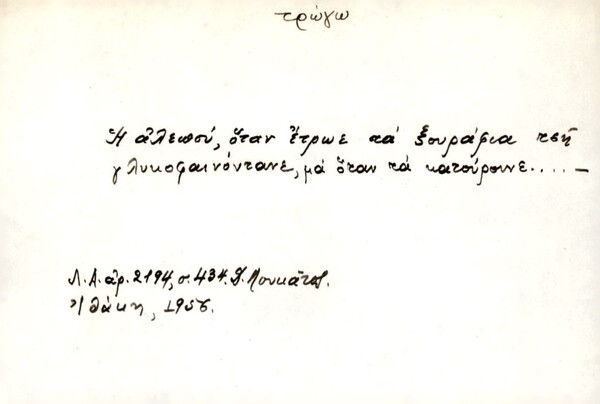 τρώγω
Ἡ ἀλεπού, ὅταν ἔτρωε τά ξουράφια τσῆ
γλυκοφαινόντανε, μά ὅταν τά κατούρουνε.... —
Λ.Α. ἀρ. 2194, σ. 434. Δ. Λουκᾶτος.
Ἰθάκη, 1956.